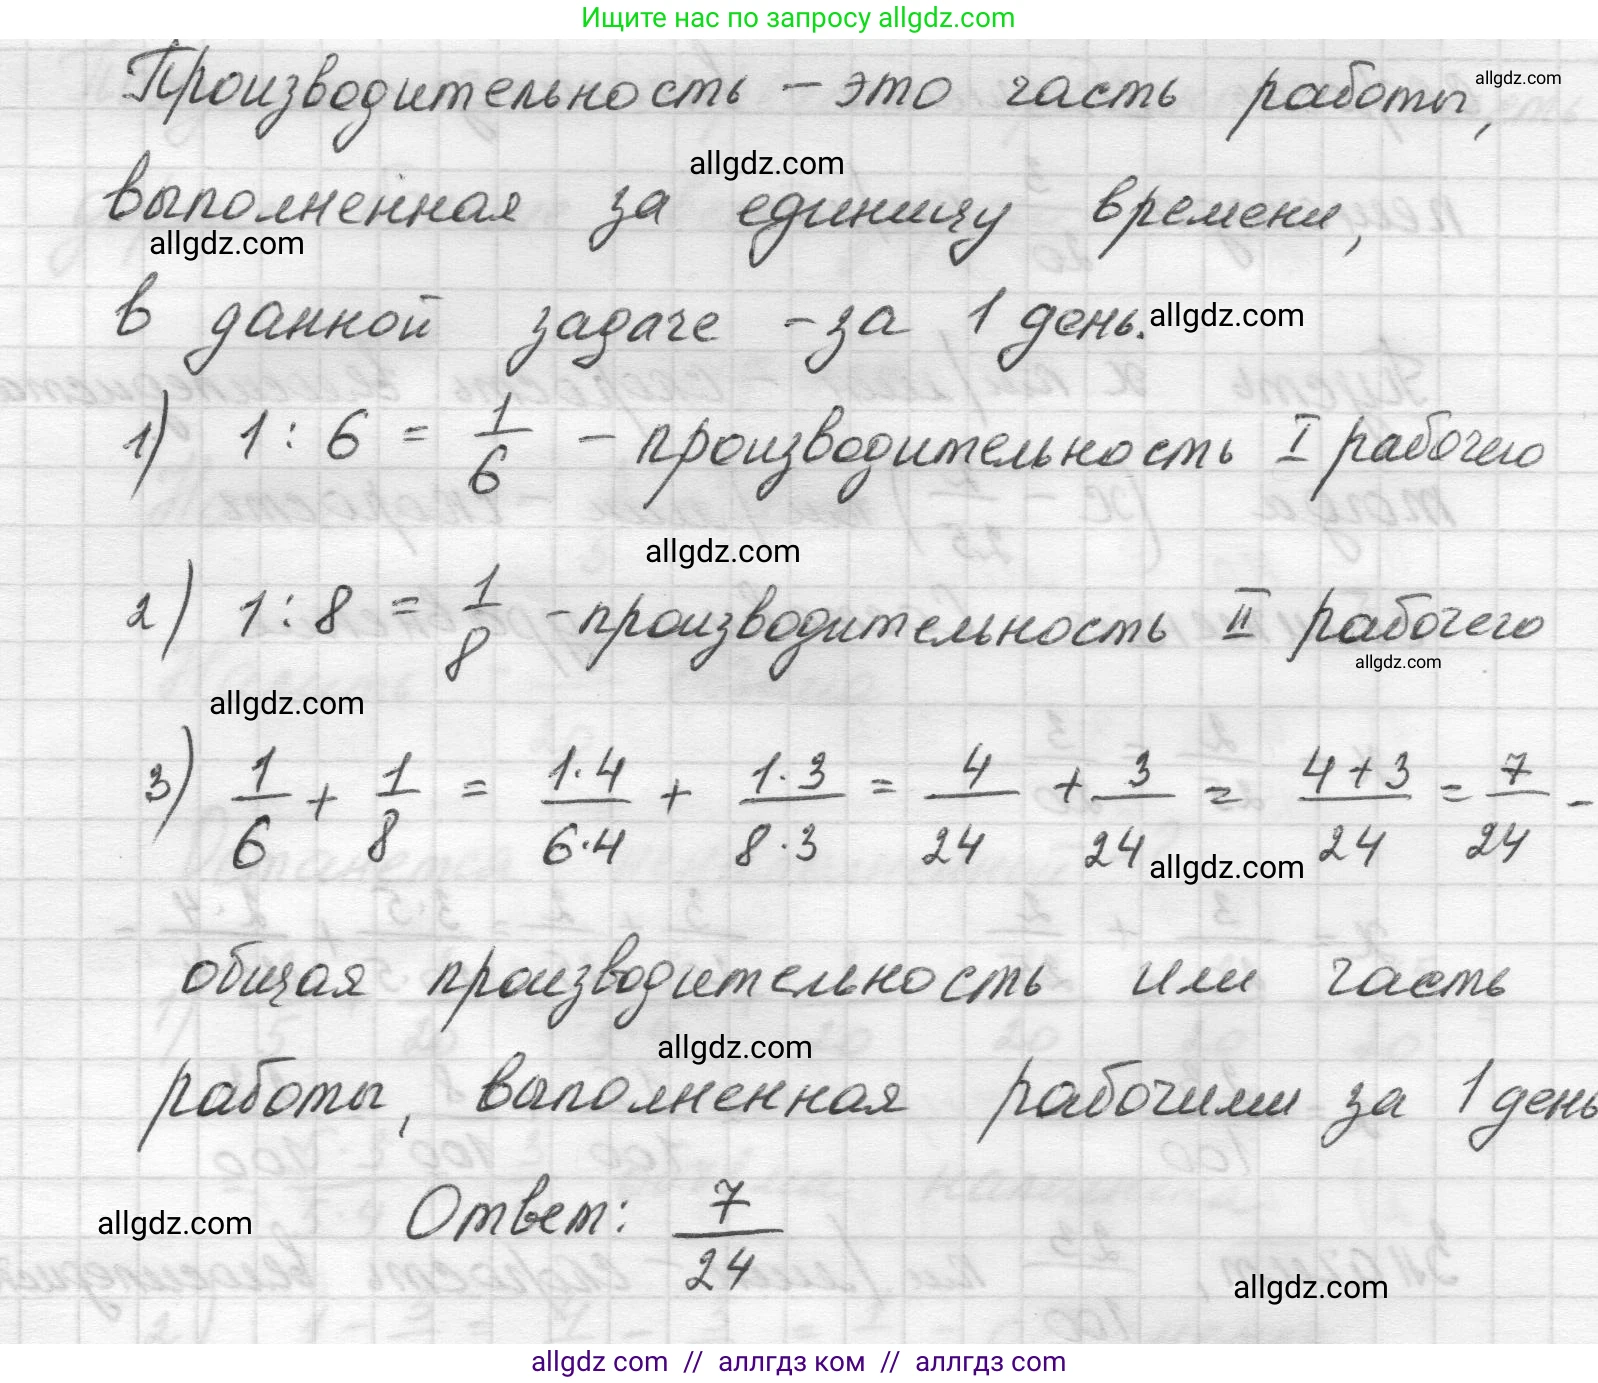 Ищите нас по запросу allgdz.com
Производительность – это часть работы,
allgdz.com
allgdz.com
выполненная за единицу времени,
allgdz.com
в данной задаче – за 1 день.
allgdz.com
1) 1 : 6 = 1/6 – производительность I рабочего
allgdz.com
2) 1 : 8 = 1/8 – производительность II рабочего
allgdz.com
allgdz.com
3) 1/6 + 1/8 = 1·4/6·4 + 1·3/8·3 = 4/24 + 3/24 = 4+3/24 = 7/24 –
allgdz.com
общая производительность или часть
allgdz.com
работы, выполненная рабочими за 1 день
allgdz.com
Ответ: 7/24
allgdz.com
allgdz com // аллгдз ком // аллгдз com